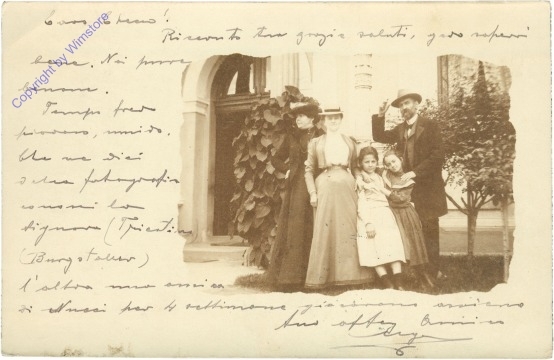 Caro
Ricevuto tua grazie saluti, godo sapervi
bene. Noi pure
Tempo fred
piovoso, umido.
Che ne dici
della fotografia
conosci la
Signora (Triestin
(Burgstaller)
l'altra una amica
di Nucci per 4 settimane
tuo
Copyright by Wimstore